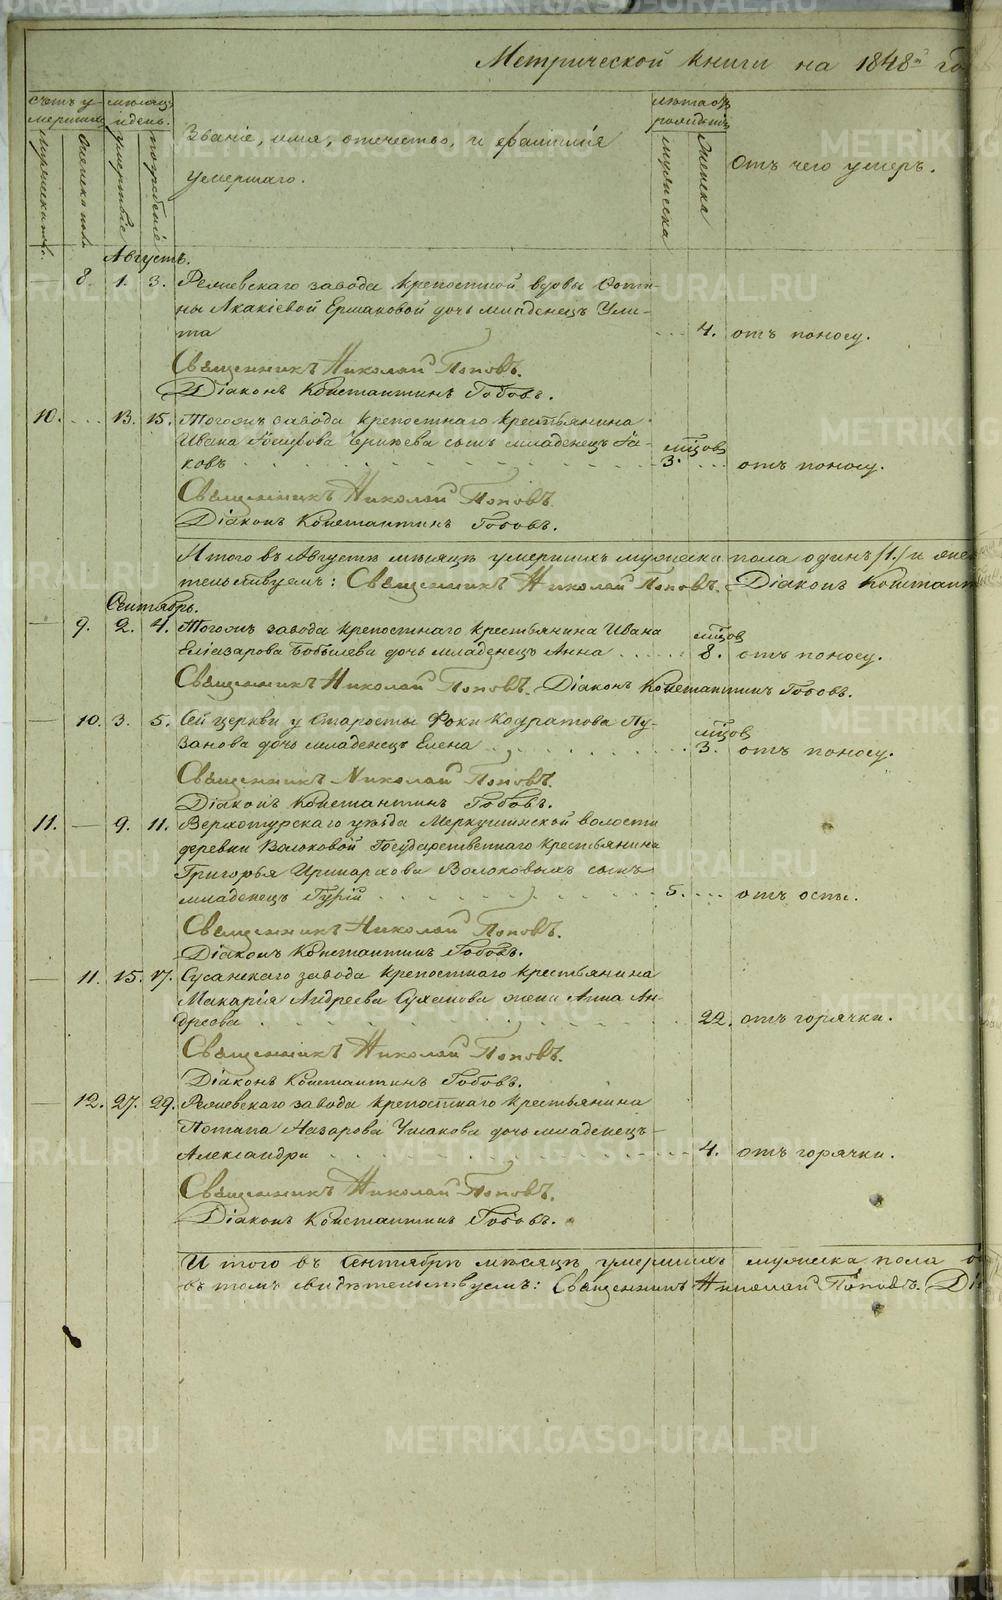 Метрической книги на 1848й го
счетъ у-
мершихъ.
мѣсяцъ
и день.
мужеска пол.
женска пол.
умертвіе
погребеніе
Званіе, имя, отечество, и фамилія
умершаго.
лѣта отъ
рожденія
мужеска
женска
Отъ чего умеръ.
Августъ.
8. 1. 3. Режевскаго завода крепостной вдовы Фоти-
ны Акакіевой Ермаковой дочь младенецъ Ули-
та 4. отъ поносу.
Священникъ Николай Поповъ.
Діаконъ Константинъ Гобовъ.
10. 13. 15. Тогожъ завода крепостнаго крестьянина
Ивана сынъ младенецъ Іа-
ковъ мѣсцов 3. отъ поносу.
Священникъ Николай Поповъ.
Діаконъ Константинъ Гобовъ.
Итого въ Августѣ мѣсяцѣ умершихъ мужеска пола одинъ /1./ и жен
тельствуемъ: Священникъ Николай Поповъ. Діаконъ Константи
Сентябрь.
9. 2. 4. Тогожъ завода крепостнаго крестьянина Ивана
Еліазарова Бобылева дочь младенецъ Анна мѣсцов 8. отъ поносу.
Священникъ Николай Поповъ. Діаконъ Константинъ Гобовъ.
10. 3. 5. Сей церкви у Старосты Фоки Кодратова Пу-
занова дочь младенецъ Елена мѣсцов 3. отъ поносу.
Священникъ Николай Поповъ.
Діаконъ Константинъ Гобовъ.
11. 9. 11. Верхотурскаго уѣзда Меркушинской волости
деревни Волоковой Государственнаго крестьянина
Григорья Иринархова Волоковыхъ сынъ
младенецъ Гурій 5. отъ оспы.
Священникъ Николай Поповъ.
Діаконъ Константинъ Гобовъ.
11. 15. 17. Сусанскаго завода крепостнаго крестьянина
Макарія Андреева жена Анна Ан-
дреева 22. отъ горячки.
Священникъ Николай Поповъ.
Діаконъ Константинъ Гобовъ.
12. 27. 29. Режевскаго завода крепостнаго крестьянина
Потапа Назарова Ушакова дочь младенецъ
Александра 4. отъ горячки.
Священникъ Николай Поповъ.
Діаконъ Константинъ Гобовъ.
Итого въ Сентябрѣ мѣсяцѣ умершихъ мужеска пола о
въ томъ свидѣтельствуемъ: Священникъ Николай Поповъ. Ді
METRIKI.GASO-URAL.RU